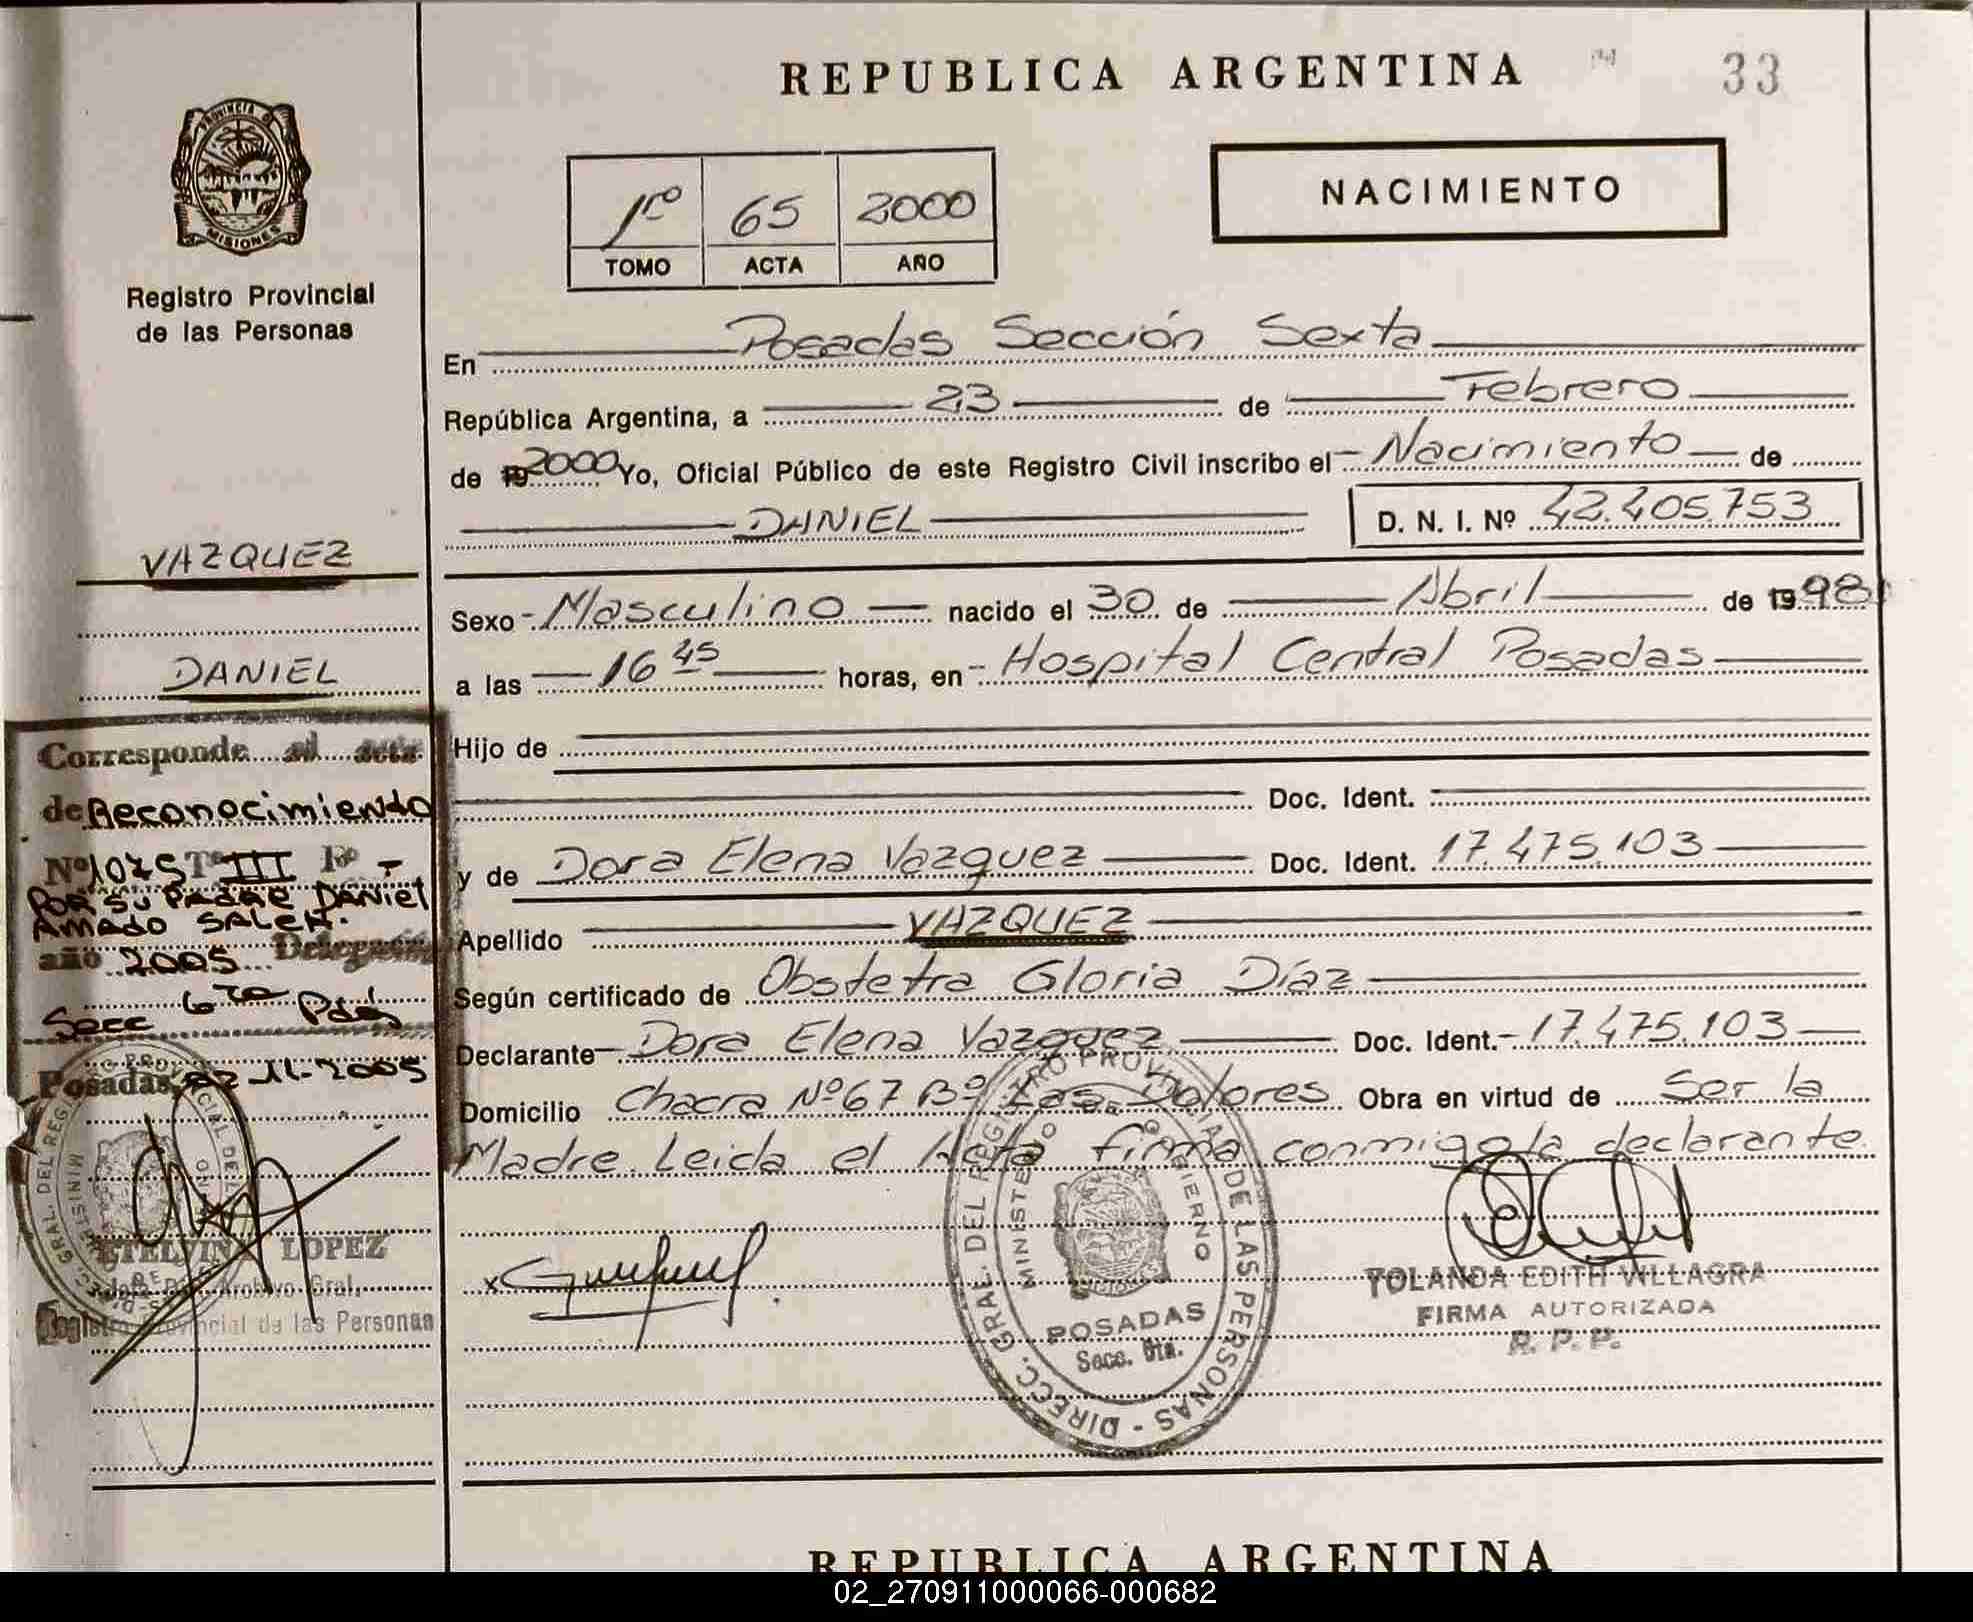 REPUBLICA ARGENTINA
33
PROVINCIA DE
MISIONES
Registro Provincial
de las Personas
1ro 65 2000
TOMO ACTA AÑO
NACIMIENTO
En Posadas Sección Sexta
República Argentina, a 23 de Febrero
de 19 2000 Yo, Oficial Público de este Registro Civil inscribo el Nacimiento de
DANIEL D. N. I. Nº 42.405.753
Sexo Masculino nacido el 30 de Abril de 1998
a las 16 45 horas, en Hospital Central Posadas
Hijo de
Doc. Ident.
y de Dora Elena Vazquez Doc. Ident. 17.475.103
Apellido VAZQUEZ
Según certificado de Obstetra Gloria Díaz
Declarante Dora Elena Vazquez Doc. Ident. 17.475.103
Domicilio Chacra Nº67 Bº Las Dolores Obra en virtud de Ser la
Madre. Leida el Acta firma conmigo la declarante.
VAZQUEZ
DANIEL
Corresponde al acta
de Reconocimiento
Nº1075 Tº III Fº -
POR SU PADRE DANIEL
AMADO SALEH.
año 2005 Delegación
Secc 6ta Pdas
Posadas, 02-11-2005
ETELVINA LOPEZ
Archivo Gral.
Registro Provincial de las Personas
x
DIRECC. GRAL. DEL REGISTRO PROVINCIAL DE LAS PERSONAS
MINISTERIO DE GOBIERNO
POSADAS
Secc. 6ta.
YOLANDA EDITH VILLAGRA
FIRMA AUTORIZADA
R. P. P.
REPUBLICA ARGENTINA
02_270911000066-000682